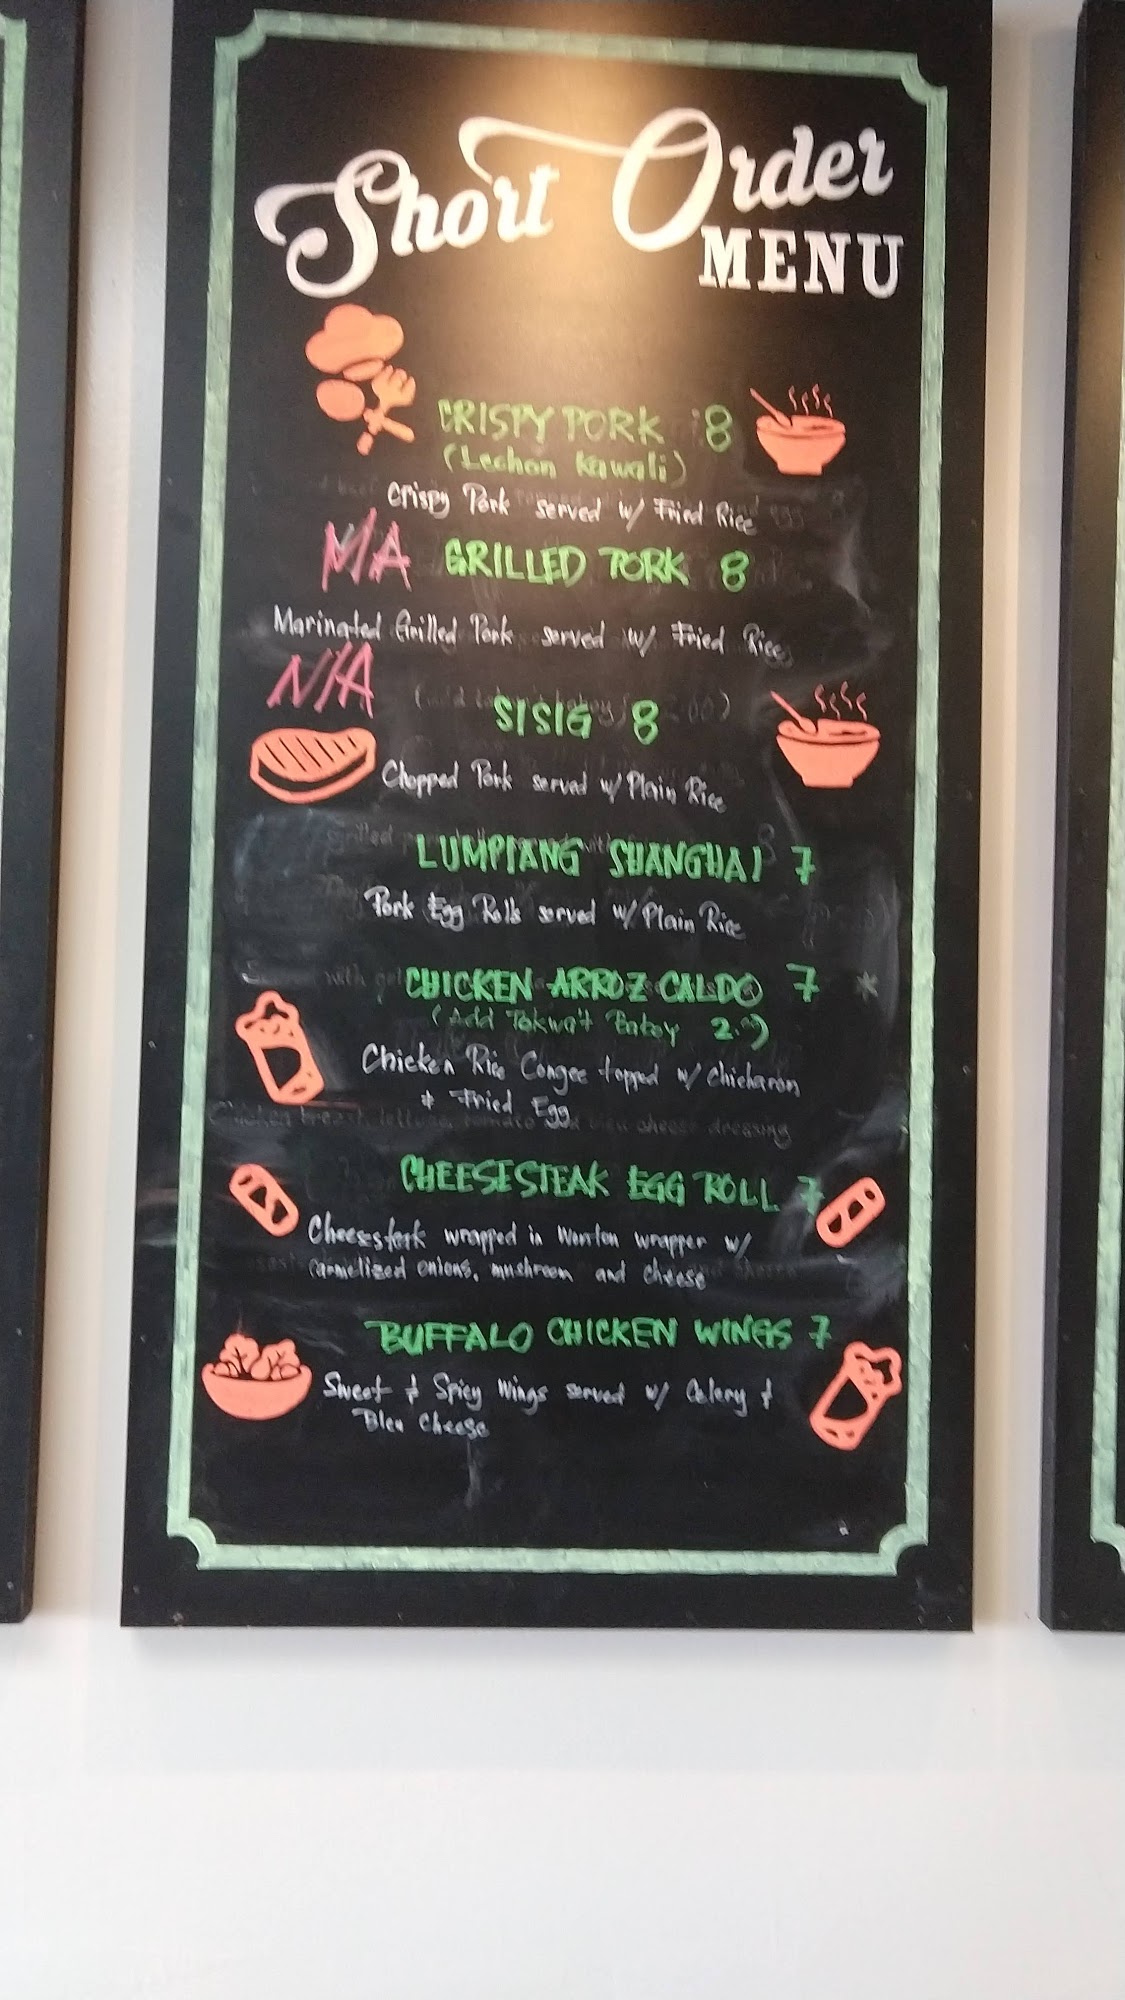 Short Order
MENU
CRISPY PORK 8
(Lechon Kawali)
Crispy Pork served w/ Fried Rice
N/A GRILLED PORK 8
Marinated Grilled Pork served w/ Fried Rice
N/A
SISIG 8
Chopped Pork served w/ Plain Rice
LUMPIANG SHANGHAI 7
Pork Egg Rolls served w/ Plain Rice
CHICKEN ARROZ CALDO 7 *
(Add Tokwa't Baboy 2.00)
Chicken Rice Congee topped w/ Chicharon
& Fried Egg
CHEESESTEAK EGG ROLL 7
Cheesesteak wrapped in Wonton wrapper w/
carmelized onions, mushroom and cheese
BUFFALO CHICKEN WINGS 7
Sweet & Spicy Wings served w/ Celery &
Bleu Cheese